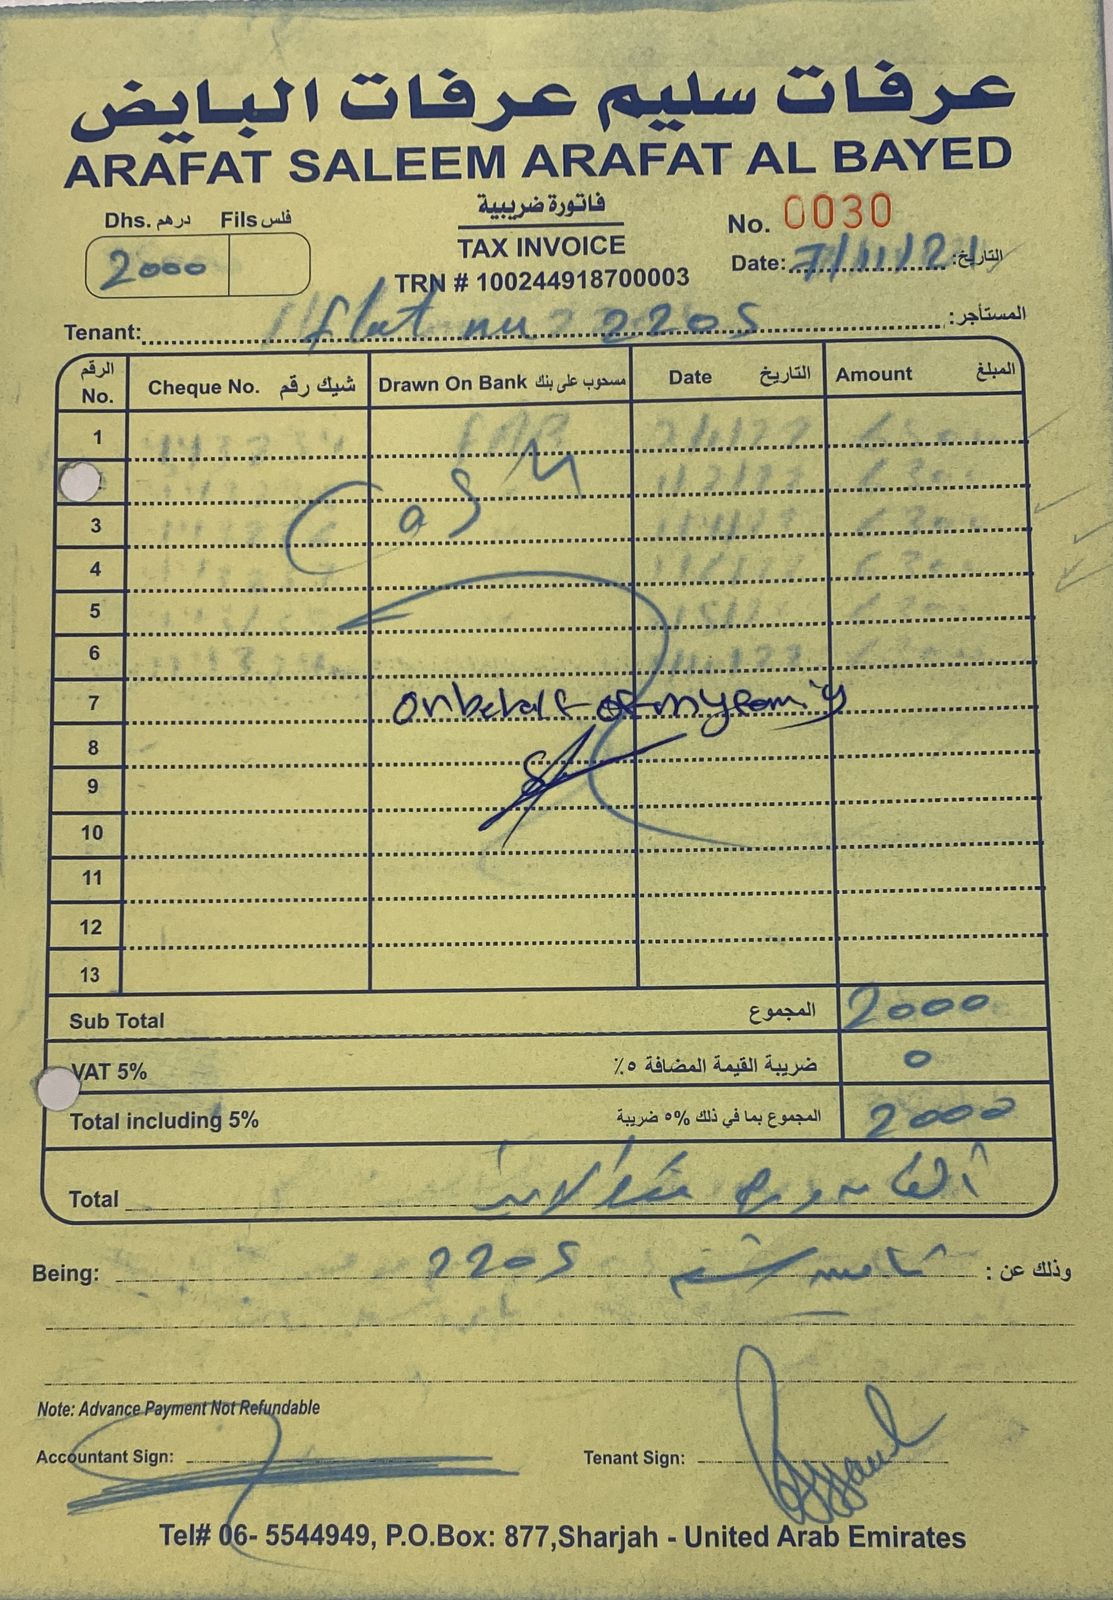 عرفات سليم عرفات البايض
ARAFAT SALEEM ARAFAT AL BAYED
Dhs. درهم Fils فلس
2000
فاتورة ضريبية
TAX INVOICE
TRN # 100244918700003
No. 0030
Date: 7/11/21 التاريخ:
Tenant: flat nu 2205 المستأجر:
الرقم No. Cheque No. شيك رقم Drawn On Bank مسحوب على بنك Date التاريخ Amount المبلغ
1
3
4
5
6
7
8
9
10
11
12
13
Cash
on behalf of my family
Sub Total المجموع 2000
VAT 5% ضريبة القيمة المضافة ٥٪ 0
Total including 5% المجموع بما في ذلك ٥% ضريبة 2000
Total
Being: 2205 وذلك عن :
Note: Advance Payment Not Refundable
Accountant Sign: Tenant Sign:
Tel# 06- 5544949, P.O.Box: 877,Sharjah - United Arab Emirates